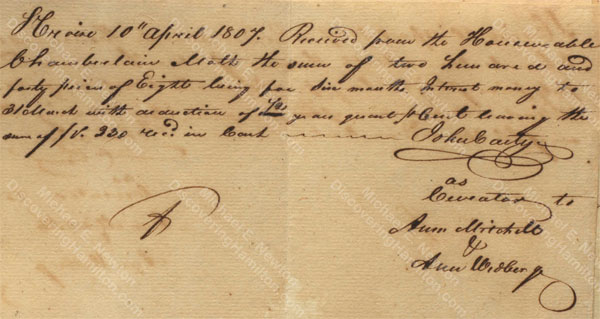 St Croix 10th April 1807. Received from the Honourable
Chamberlain Moth the sum of two hundred and
forty pieces of Eight being for Six months Interest money to
31 March with deduction of years quart pr Cent leaving the
sum of ps. 230 recd. in Cash John Carty
as
Curator to
Ann Mitchell
&
Ann Widberg
Michael E. Newton
DiscoveringHamilton.com